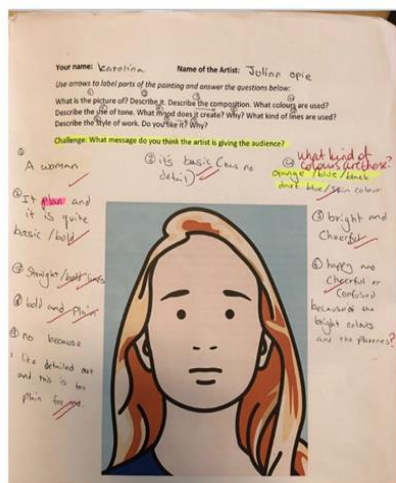 Your name: Karolina Name of the Artist: Julian opie
Use arrows to label parts of the painting and answer the questions below:
What is the picture of? Describe it. Describe the composition. What colours are used?
Describe the use of tone. What mood does it create? Why? What kind of lines are used?
Describe the style of work. Do you like it? Why?
Challenge: What message do you think the artist is giving the audience?
A woman
it's basic (has no
detail)
what kind of
colours are those?
orange / blue / black
dark blue / skin colour
It plan and
it is quite
basic / bold
bright and
Cheerful
Straight / bold lines
happy and
cheerful or
Confused
because of the
bright colours
and the ?
bold and Plain
no because
I like detailed art
and this is too
plain for me.